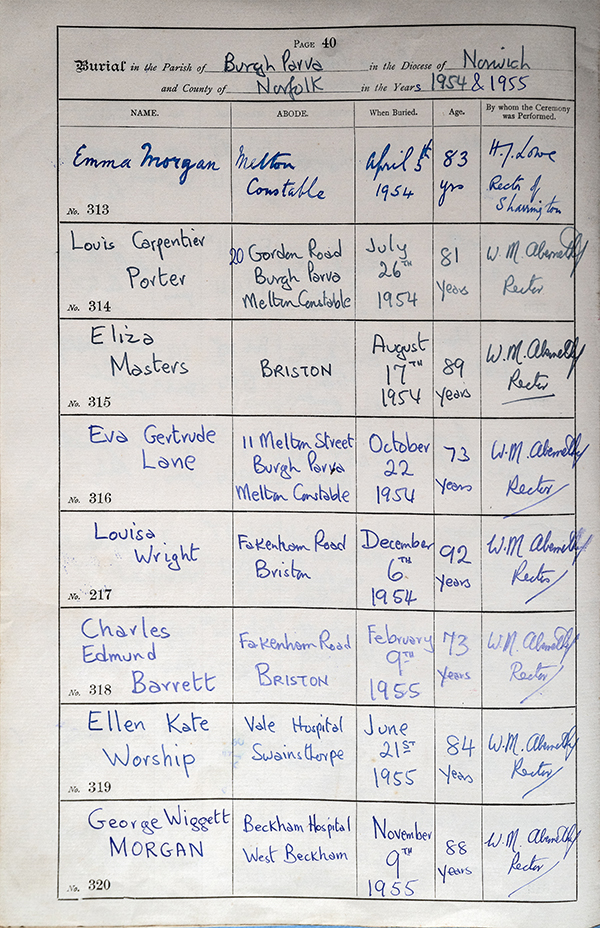 PAGE 40
Burial in the Parish of Burgh Parva in the Diocese of Norwich
and County of Norfolk in the Years 1954 & 1955
NAME. ABODE. When Buried. Age. By whom the Ceremony was Performed.
Emma Morgan
No. 313
Melton
Constable
April 5th
1954
83
yrs
H.J. Lowe
Rector of
Sharrington
Louis Carpentier
Porter
No. 314
20 Gordon Road
Burgh Parva
Melton Constable
July
26TH
1954
81
Years
W.M. Abernethy
Rector
Eliza
Masters
No. 315
BRISTON
August
17TH
1954
89
Years
W.M. Abernethy
Rector
Eva Gertrude
Lane
No. 316
11 Melton Street
Burgh Parva
Melton Constable
October
22
1954
73
Years
W.M. Abernethy
Rector
Louisa
Wright
No. 217
Fakenham Road
Briston
December
6TH
1954
92
Years
W.M. Abernethy
Rector
Charles
Edmund
Barrett
No. 318
Fakenham Road
BRISTON
February
9TH
1955
73
Years
W.M. Abernethy
Rector
Ellen Kate
Worship
No. 319
Vale Hospital
Swainsthorpe
June
21ST
1955
84
Years
W.M. Abernethy
Rector
George Wiggett
MORGAN
No. 320
Beckham Hospital
West Beckham
November
9TH
1955
88
Years
W.M. Abernethy
Rector